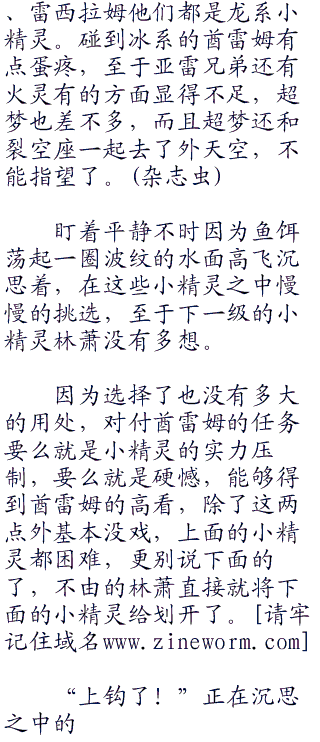 、雷西拉姆他们都是龙系小
精灵。碰到冰系的酋雷姆有
点蛋疼，至于亚雷兄弟还有
火灵有的方面显得不足，超
梦也差不多，而且超梦还和
裂空座一起去了外天空，不
能指望了。(杂志虫)
盯着平静不时因为鱼饵
荡起一圈波纹的水面高飞沉
思着，在这些小精灵之中慢
慢的挑选，至于下一级的小
精灵林萧没有多想。
因为选择了也没有多大
的用处，对付酋雷姆的任务
要么就是小精灵的实力压
制，要么就是硬憾，能够得
到酋雷姆的高看，除了这两
点外基本没戏，上面的小精
灵都困难，更别说下面的
了，不由的林萧直接就将下
面的小精灵给划开了。[请牢
记住域名www.zineworm.com]
“上钩了！”正在沉思
之中的